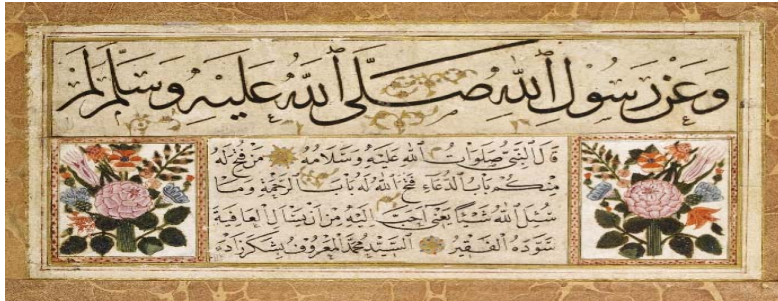 وَعَنْ رَسُولِ ٱللهِ صَلَّى ٱللهُ عَلَيْهِ وَسَلَّمَ لَمْ
قَالَ ٱلنَّبِيُّ صَلَوَاتُ ٱللهِ عَلَيْهِ وَسَلَامُهُ مَنْ فُتِحَ لَهُ
مِنْكُمْ بَابُ ٱلدُّعَاءِ فَتَحَ ٱللهُ لَهُ بَابَ ٱلرَّحْمَةِ وَمَا
سُئِلَ ٱللهُ شَيْئًا يَعْنِي أَحَبَّ إِلَيْهِ مِنْ أَنْ يُسْأَلَ ٱلْعَافِيَةَ
سَوَّدَهُ ٱلْفَقِيرُ ٱلسَّيِّدُ مُحَمَّدٌ ٱلْمَعْرُوفُ بِشَكَرْزَادَهْ